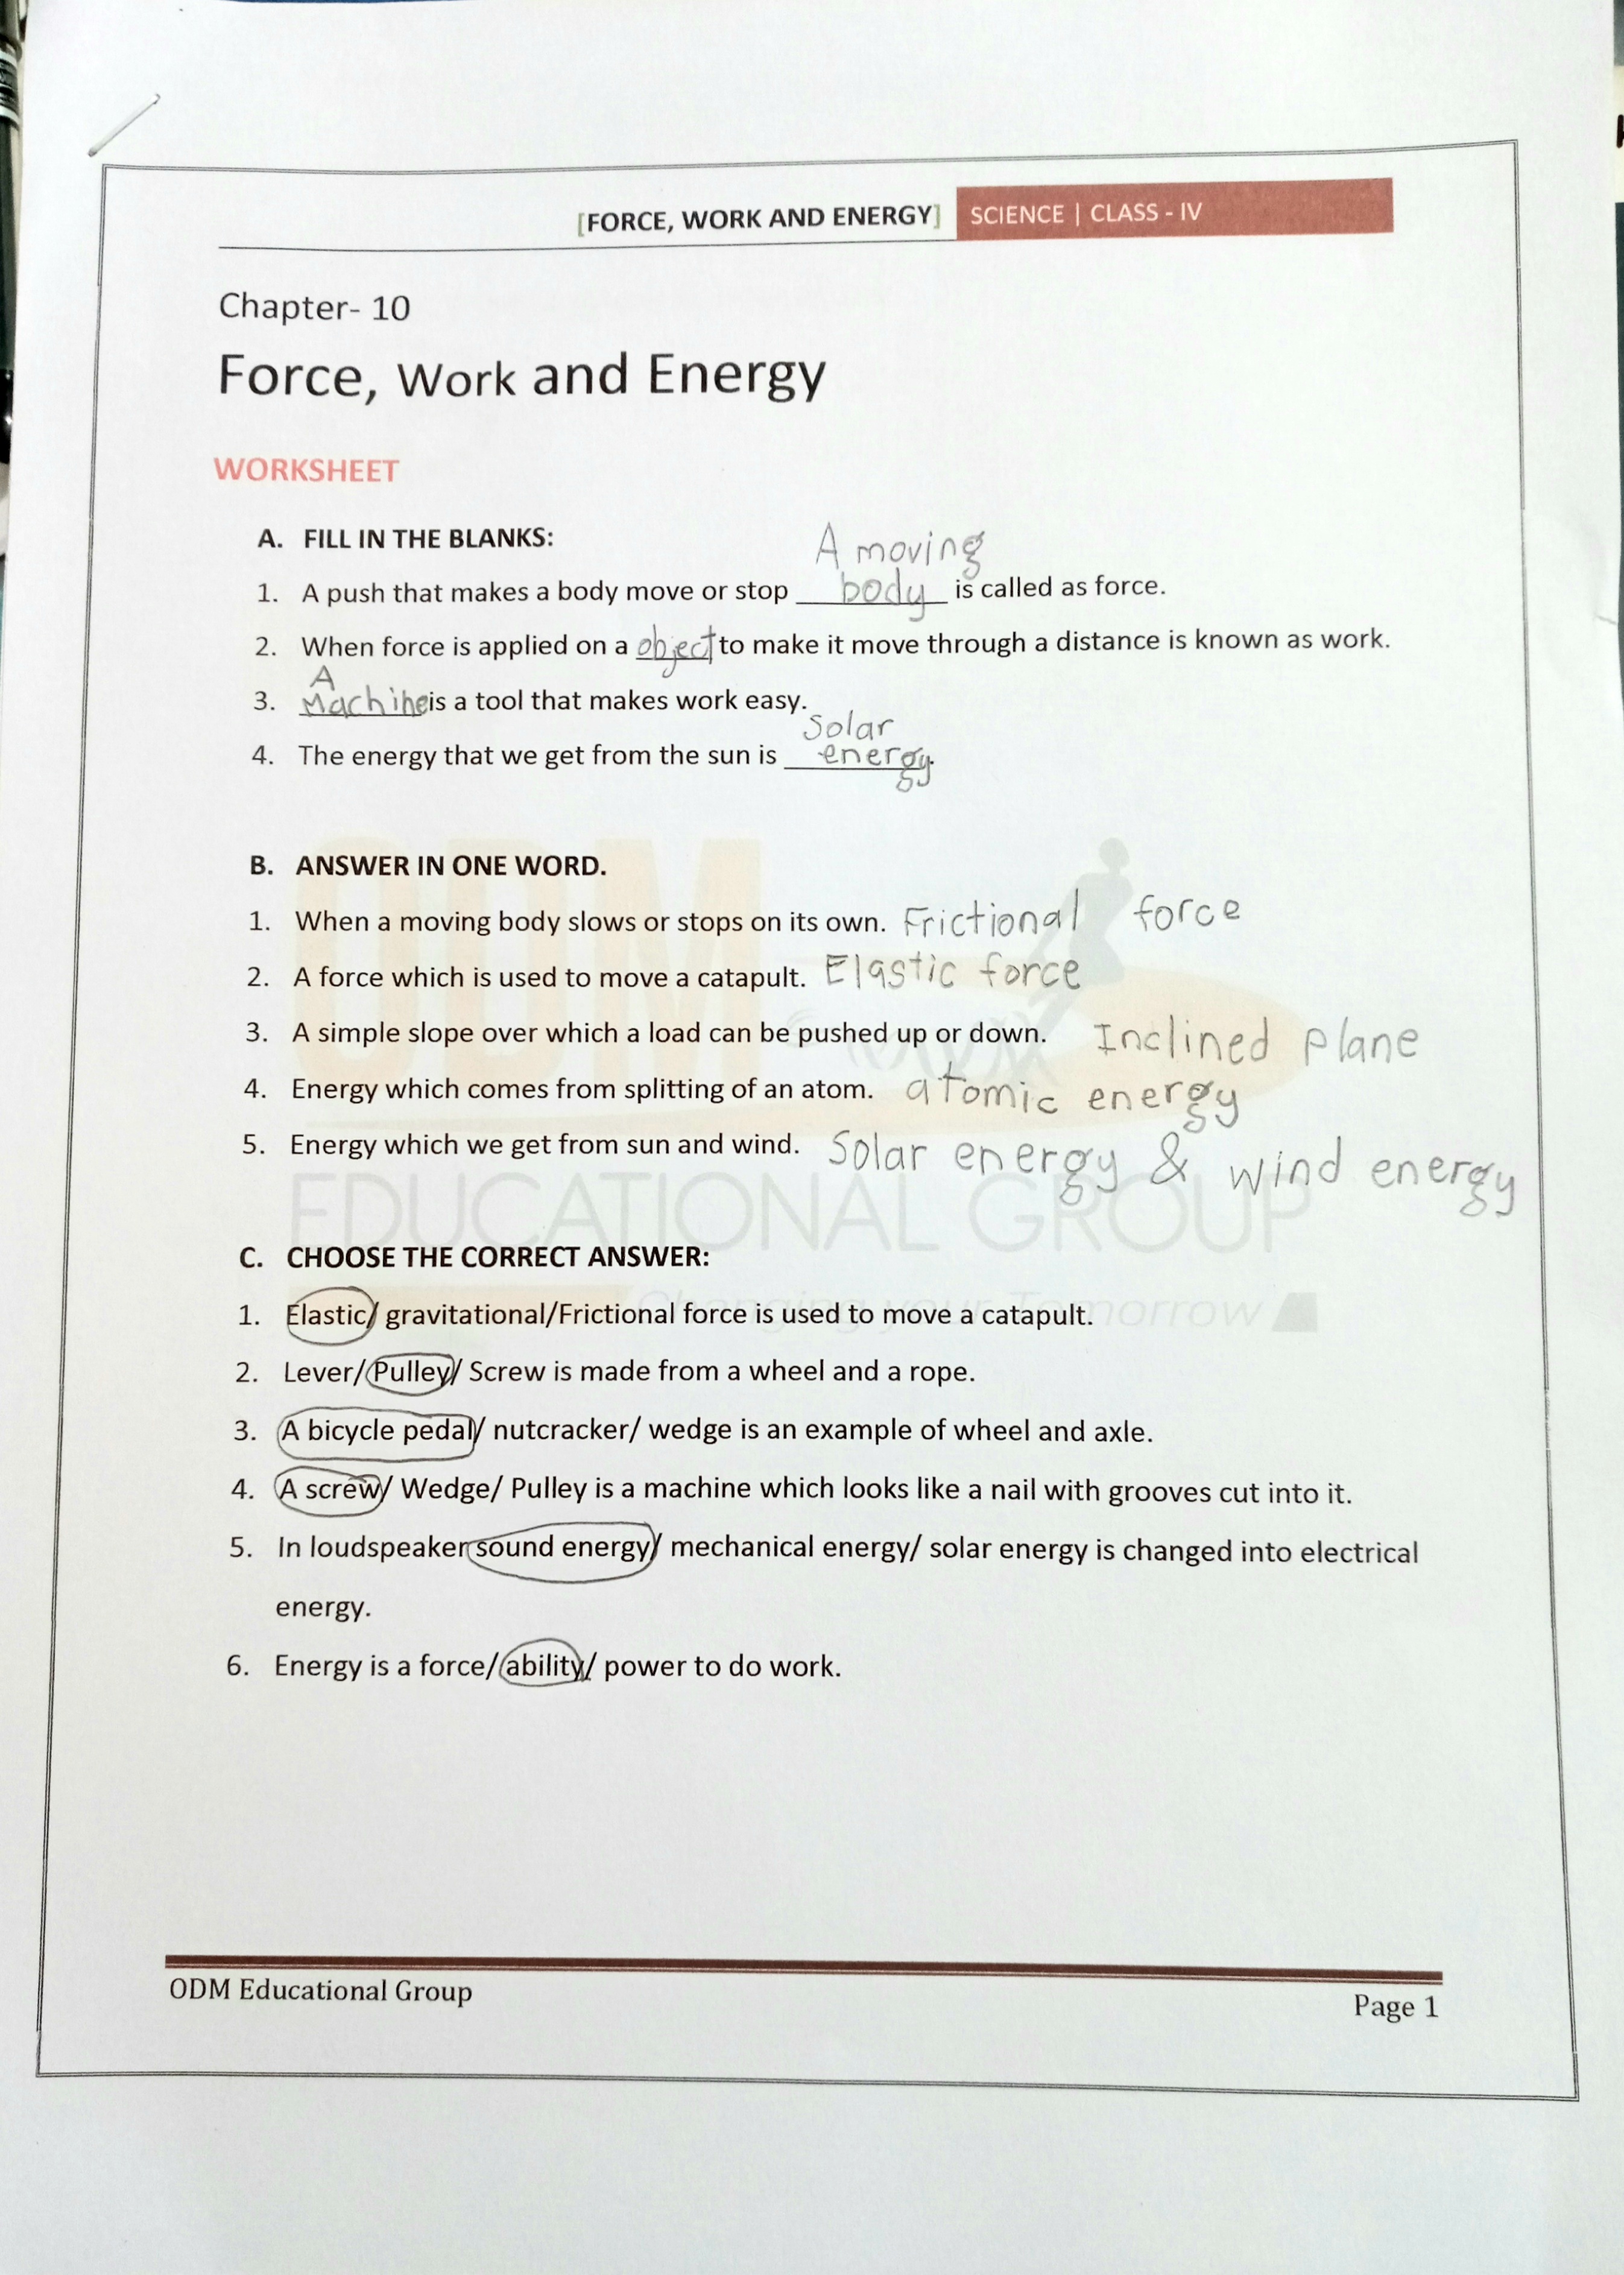 [FORCE, WORK AND ENERGY] SCIENCE | CLASS - IV
Chapter- 10
Force, Work and Energy
WORKSHEET
A. FILL IN THE BLANKS:
A moving
1. A push that makes a body move or stop body is called as force.
2. When force is applied on a object to make it move through a distance is known as work.
A
3. Machine is a tool that makes work easy.
Solar
4. The energy that we get from the sun is energy.
B. ANSWER IN ONE WORD.
1. When a moving body slows or stops on its own. Frictional force
2. A force which is used to move a catapult. Elastic force
3. A simple slope over which a load can be pushed up or down. Inclined plane
4. Energy which comes from splitting of an atom. atomic energy
5. Energy which we get from sun and wind. Solar energy & wind energy
ODM
EDUCATIONAL GROUP
Changing your Tomorrow
C. CHOOSE THE CORRECT ANSWER:
1. Elastic/ gravitational/Frictional force is used to move a catapult.
2. Lever/ Pulley/ Screw is made from a wheel and a rope.
3. A bicycle pedal/ nutcracker/ wedge is an example of wheel and axle.
4. A screw/ Wedge/ Pulley is a machine which looks like a nail with grooves cut into it.
5. In loudspeaker sound energy/ mechanical energy/ solar energy is changed into electrical
energy.
6. Energy is a force/ ability/ power to do work.
ODM Educational Group
Page 1